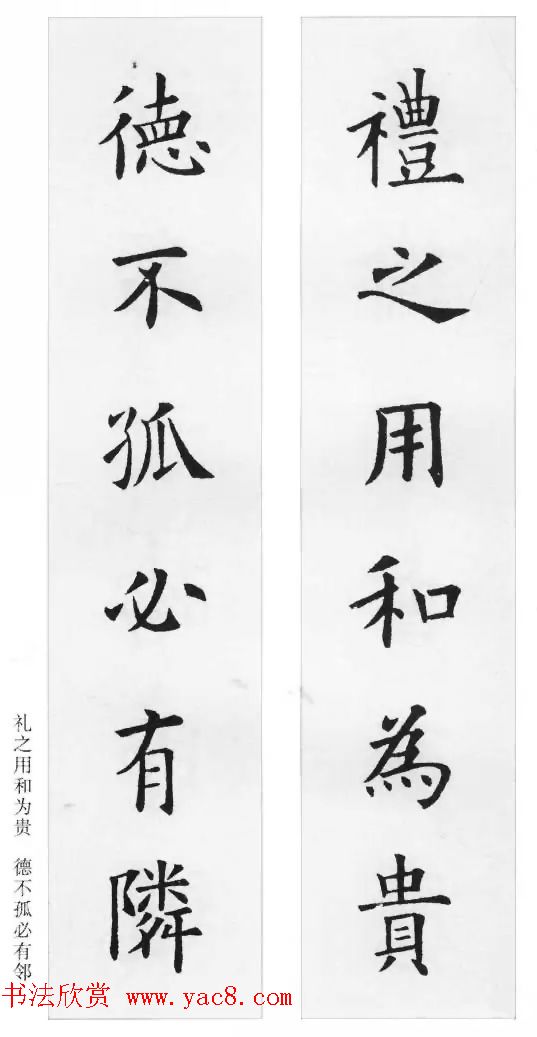 禮之用和為貴
德不孤必有隣
礼之用和为贵 德不孤必有邻
书法欣赏 www.yac8.com